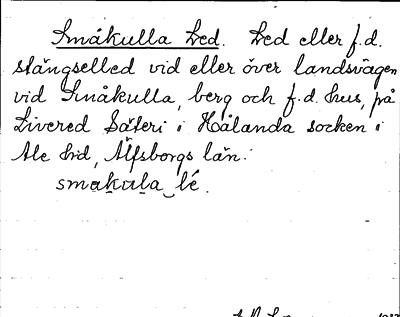 Småkulla Led. Led eller f.d.
stängselled vid eller över landsvägen
vid Småkulla, berg och f.d. hus, på
Livered Säteri i Hålanda socken i
Ale hd, Älfsborgs län.
smakula lé.